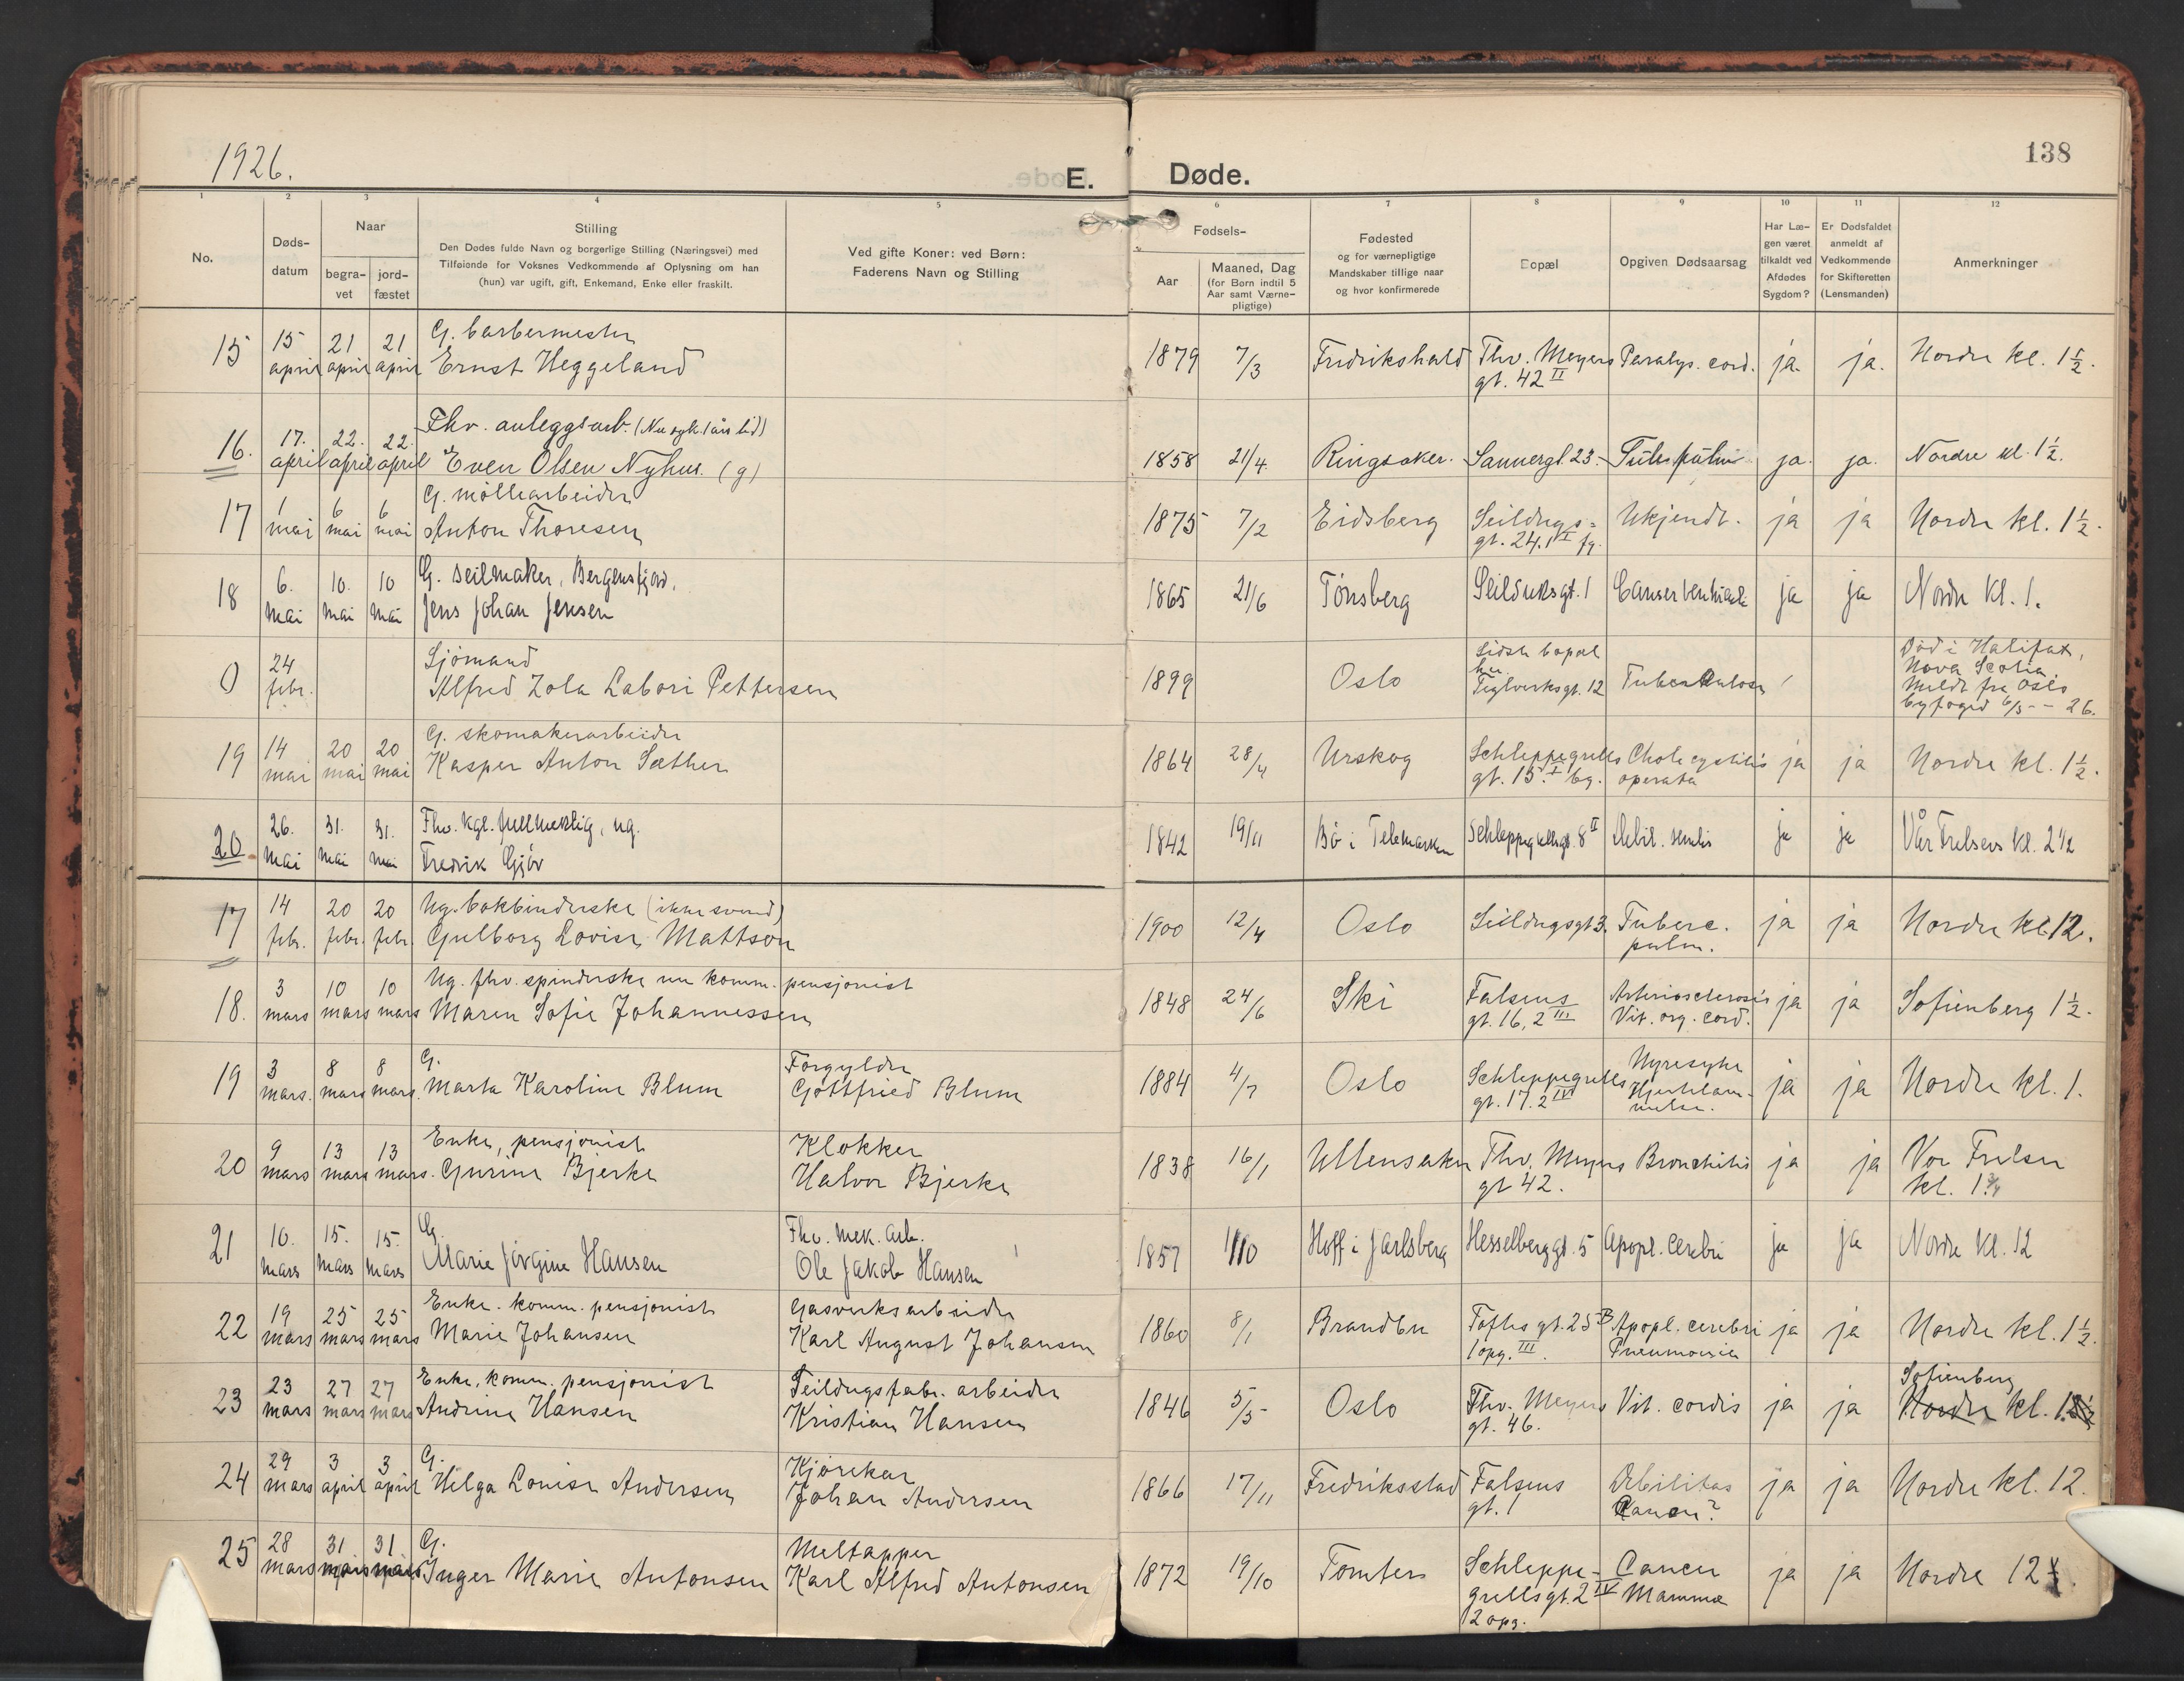 1926.
E. Døde.
138
1 2 3 4 5 6 7 8 9 10 11 12
No.
Døds-
datum
Naar
begra-
vet
jord-
fæstet
Stilling
Den Dødes fulde Navn og borgerlige Stilling (Næringsvei) med
Tilføiende for Voksnes Vedkommende af Oplysning om han
(hun) var ugift, gift, Enkemand, Enke eller fraskilt.
Ved gifte Koner: ved Børn:
Faderens Navn og Stilling
Fødsels-
Aar
Maaned, Dag
(for Børn indtil 5
Aar samt Værne-
pligtige)
Fødested
og for værnepligtige
Mandskaber tillige naar
og hvor konfirmerede
Bopæl
Opgiven Dødsaarsag
Har Læ-
gen været
tilkaldt ved
Afdødes
Sygdom?
Er Dødsfaldet
anmeldt af
Vedkommende
for Skifteretten
(Lensmanden)
Anmerkninger
15 15 april 21 april 21 april
G. barbermester
Ernst Heggeland
1879 7/3 Fredrikshald
Thv. Meyers
gt. 42 II
Paralys. cord. ja. ja. Nordre kl. 1 1/2.
16. 17. april 22. april 22. april
Fhv. anleggsarb. (Nu syk. 1 års tid)
Even Olsen Nyhus. (g)
1858 21/4 Ringsaker. Sannergt. 23. Tub. pulm. ja. ja. Nordre kl. 1 1/2.
17 1 mai 6 mai 6 mai
G. møllearbeider
Anton Thoresen
1875 7/2 Eidsberg
Seildugs-
gt. 24. 1 I fg.
Ukjendt. ja ja Nordre kl. 1 1/2.
18 6. mai 10. mai 10 mai
G. seilmaker, Bergensfjord.
Jens Johan Jensen
1865 21/6 Tønsberg Seilduksgt. 1 Canser ja ja Nordre kl. 1.
0 24 febr.
Sjømand
Alfred Zola Labori Pettersen
1899 Oslo
Sidste bopæl
her
Teglverksgt. 12
Tuberkulose
Død i Halifax,
Nova Scotia
Meldt fra Oslo
byfoged 6/5 - 26.
19 14 mai 20 mai 20 mai
G. skomakerarbeider
Kasper Anton Sæther
1864 28/4 Urskog
Schleppegrells
gt. 15. I bg.
Cholecystitis
operata
ja ja Nordre kl. 1 1/2.
20. 26. mai 31. mai 31. mai
Fhv. kgl. fullmektig, ug.
Fredrik Gjør
1842 19/11 Bø i Telemarken Schleppegrellsgt. 8 II Debil. senilis ja ja Vår Frelsers kl. 2 1/2
17 14 febr. 20 febr. 20 febr.
Ug. bokbinderske (ikke svend)
Gulborg Lovise Mattson
1900 12/4 Oslo Seildugsgt 3.
Tuberc.
pulm.
ja ja Nordre kl. 12.
18. 3 mars 10 mars 10 mars
Ug. fhv. spinderske nu komm. pensjonist
Maren Sofie Johannessen
1848 24/6 Ski
Falsens
gt. 16, 2 III
Arteriosclerosis
Vit. org. cord.
ja ja Sofienberg 1 1/2.
19 3 mars. 8 mars 8 mars.
G.
Marta Karoline Blum
Forgylder
Gottfried Blum
1884 4/7 Oslo
Schleppegrells
gt. 17. 2 IV
Nyresyke
Hjertelam-
melse.
ja ja Nordre kl. 1.
20 9 mars 13 mars 13 mars.
Enke, pensjonist
Gurine Bjerke
Klokker
Halvor Bjerke
1838 16/1 Ullensaker
Thv. Meyers
gt 42.
Bronchitis ja ja
Vor Frelser
kl. 1 3/4
21 10. mars 15. mars 15. mars
G.
Marie Jørgine Hansen
Fhv. mek. arb.
Ole Jakob Hansen
1857 1/10 Hoff i Jarlsberg Hesselberggt. 5 Apopl. cerebri ja ja Nordre kl. 12
22 19 mars 25 mars 25 mars
Enke. komm. pensjonist
Marie Johansen
Gasverksarbeider
Karl August Johansen
1860 8/1 Brandbu
Toftes gt. 25 B
1 opg. III.
Apopl. cerebri
Pneumonia
ja ja Nordre kl. 1 1/2.
23 23 mars 27 mars 27 mars
Enke, komm. pensjonist
Andrine Hansen
Seildugsfabr. arbeider
Kristian Hansen
1846 5/5 Oslo
Thv. Meyers
gt. 46.
Vit. cordis ja ja
Sofienberg
Nordre kl. 1
24 29 mars 3 april 3 april
G.
Helga Lovise Andersen
Kjørekar
Johan Andersen
1866 17/11 Fredriksstad
Falsens
gt. 1
Debilitas
Cancer?
ja ja Nordre kl. 12.
25 28 mars 31 mars 31 mars
G.
Inger Marie Antonsen
Meltapper
Karl Alfred Antonsen
1872 19/10 Tomter
Schleppe-
grellsgt. 2 IV
2 opg.
Cancer
Mammæ
ja ja Nordre 12